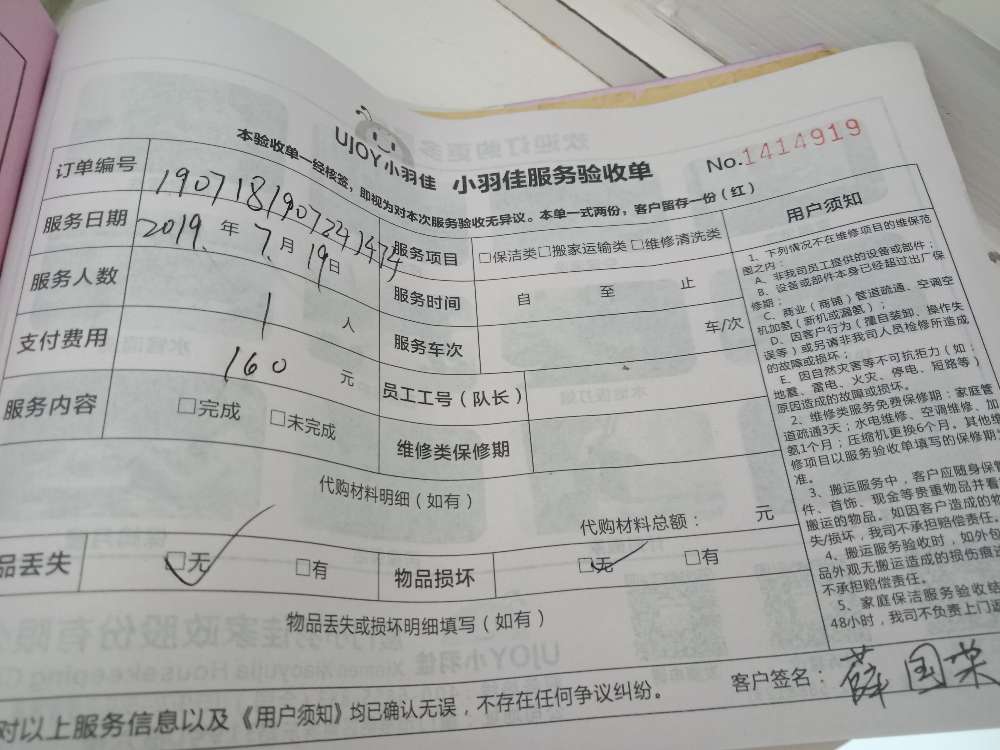 UJOY小羽佳 小羽佳服务验收单
No.1414919
本验收单一经核签，即视为对本次服务验收无异议。本单一式两份，客户留存一份（红）
订单编号 1907181907241474
服务日期 2019年7月19日
服务项目 □保洁类□搬家运输类□维修清洗类
服务人数 1人
服务时间 自 至 止
支付费用 160元
服务车次 车/次
服务内容 □完成 □未完成
员工工号（队长）
维修类保修期
代购材料明细（如有）
代购材料总额： 元
品丢失 □无 □有
物品损坏 □无 □有
物品丢失或损坏明细填写（如有）
用户须知
1、下列情况不在维修项目的维保范
围之内：
A、非我司员工提供的设备或部件；
B、设备或部件本身已经超过出厂保
修期；
C、商业（商铺）管道疏通、空调空
机加氨（新机或漏氨）；
D、因客户行为（擅自装卸、操作失
误等）或另请非我司人员检修所造成
的故障或损坏；
E、因自然灾害等不可抗拒力（如：
地震、雷电、火灾、停电、短路等）
原因造成的故障或损坏。
2、维修类服务免费保修期：家庭管
道疏通3天；水电维修、空调维修、加
氨1个月；压缩机更换6个月。其他维
修项目以服务验收单填写的保修期为
准。
3、搬运服务中，客户应随身保管
件、首饰、现金等贵重物品并看
搬运的物品。如因客户造成的物
失/损坏，我司不承担赔偿责任。
4、搬运服务验收时，如外包
品外观无搬运造成的损伤痕迹
不承担赔偿责任。
5、家庭保洁服务验收结
48小时，我司不负责上门返
对以上服务信息以及《用户须知》均已确认无误，不存在任何争议纠纷。
客户签名：薛国荣